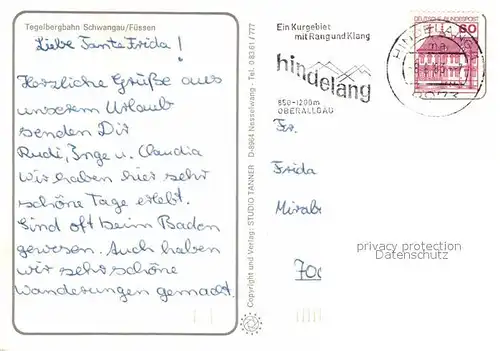 Tegelbergbahn Schwangau/Füssen
Liebe Tante Frida!
Herzliche Grüße aus
unserem Urlaub
senden Dir
Rudi, Inge u. Claudia
Wir haben hier sehr
schöne Tage erlebt.
Sind oft beim Baden
gewesen. Auch haben
wir sehr schöne
Wanderungen gemacht.
Copyright und Verlag: STUDIO TANNER D-8964 Nesselwang - Tel. 08361/777
Ein Kurgebiet
mit Rang und Klang
hindelang
850-1200m
OBERALLGÄU
DEUTSCHE BUNDESPOST
60
HINDELANG
8973
Fr.
Frida
Mirab
700
privacy protection
Datenschutz